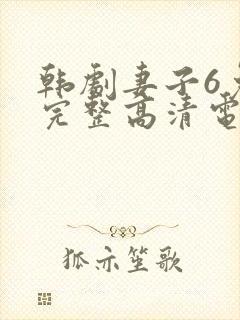 韩剧妻子6
完整高清電
狐亦笙歌